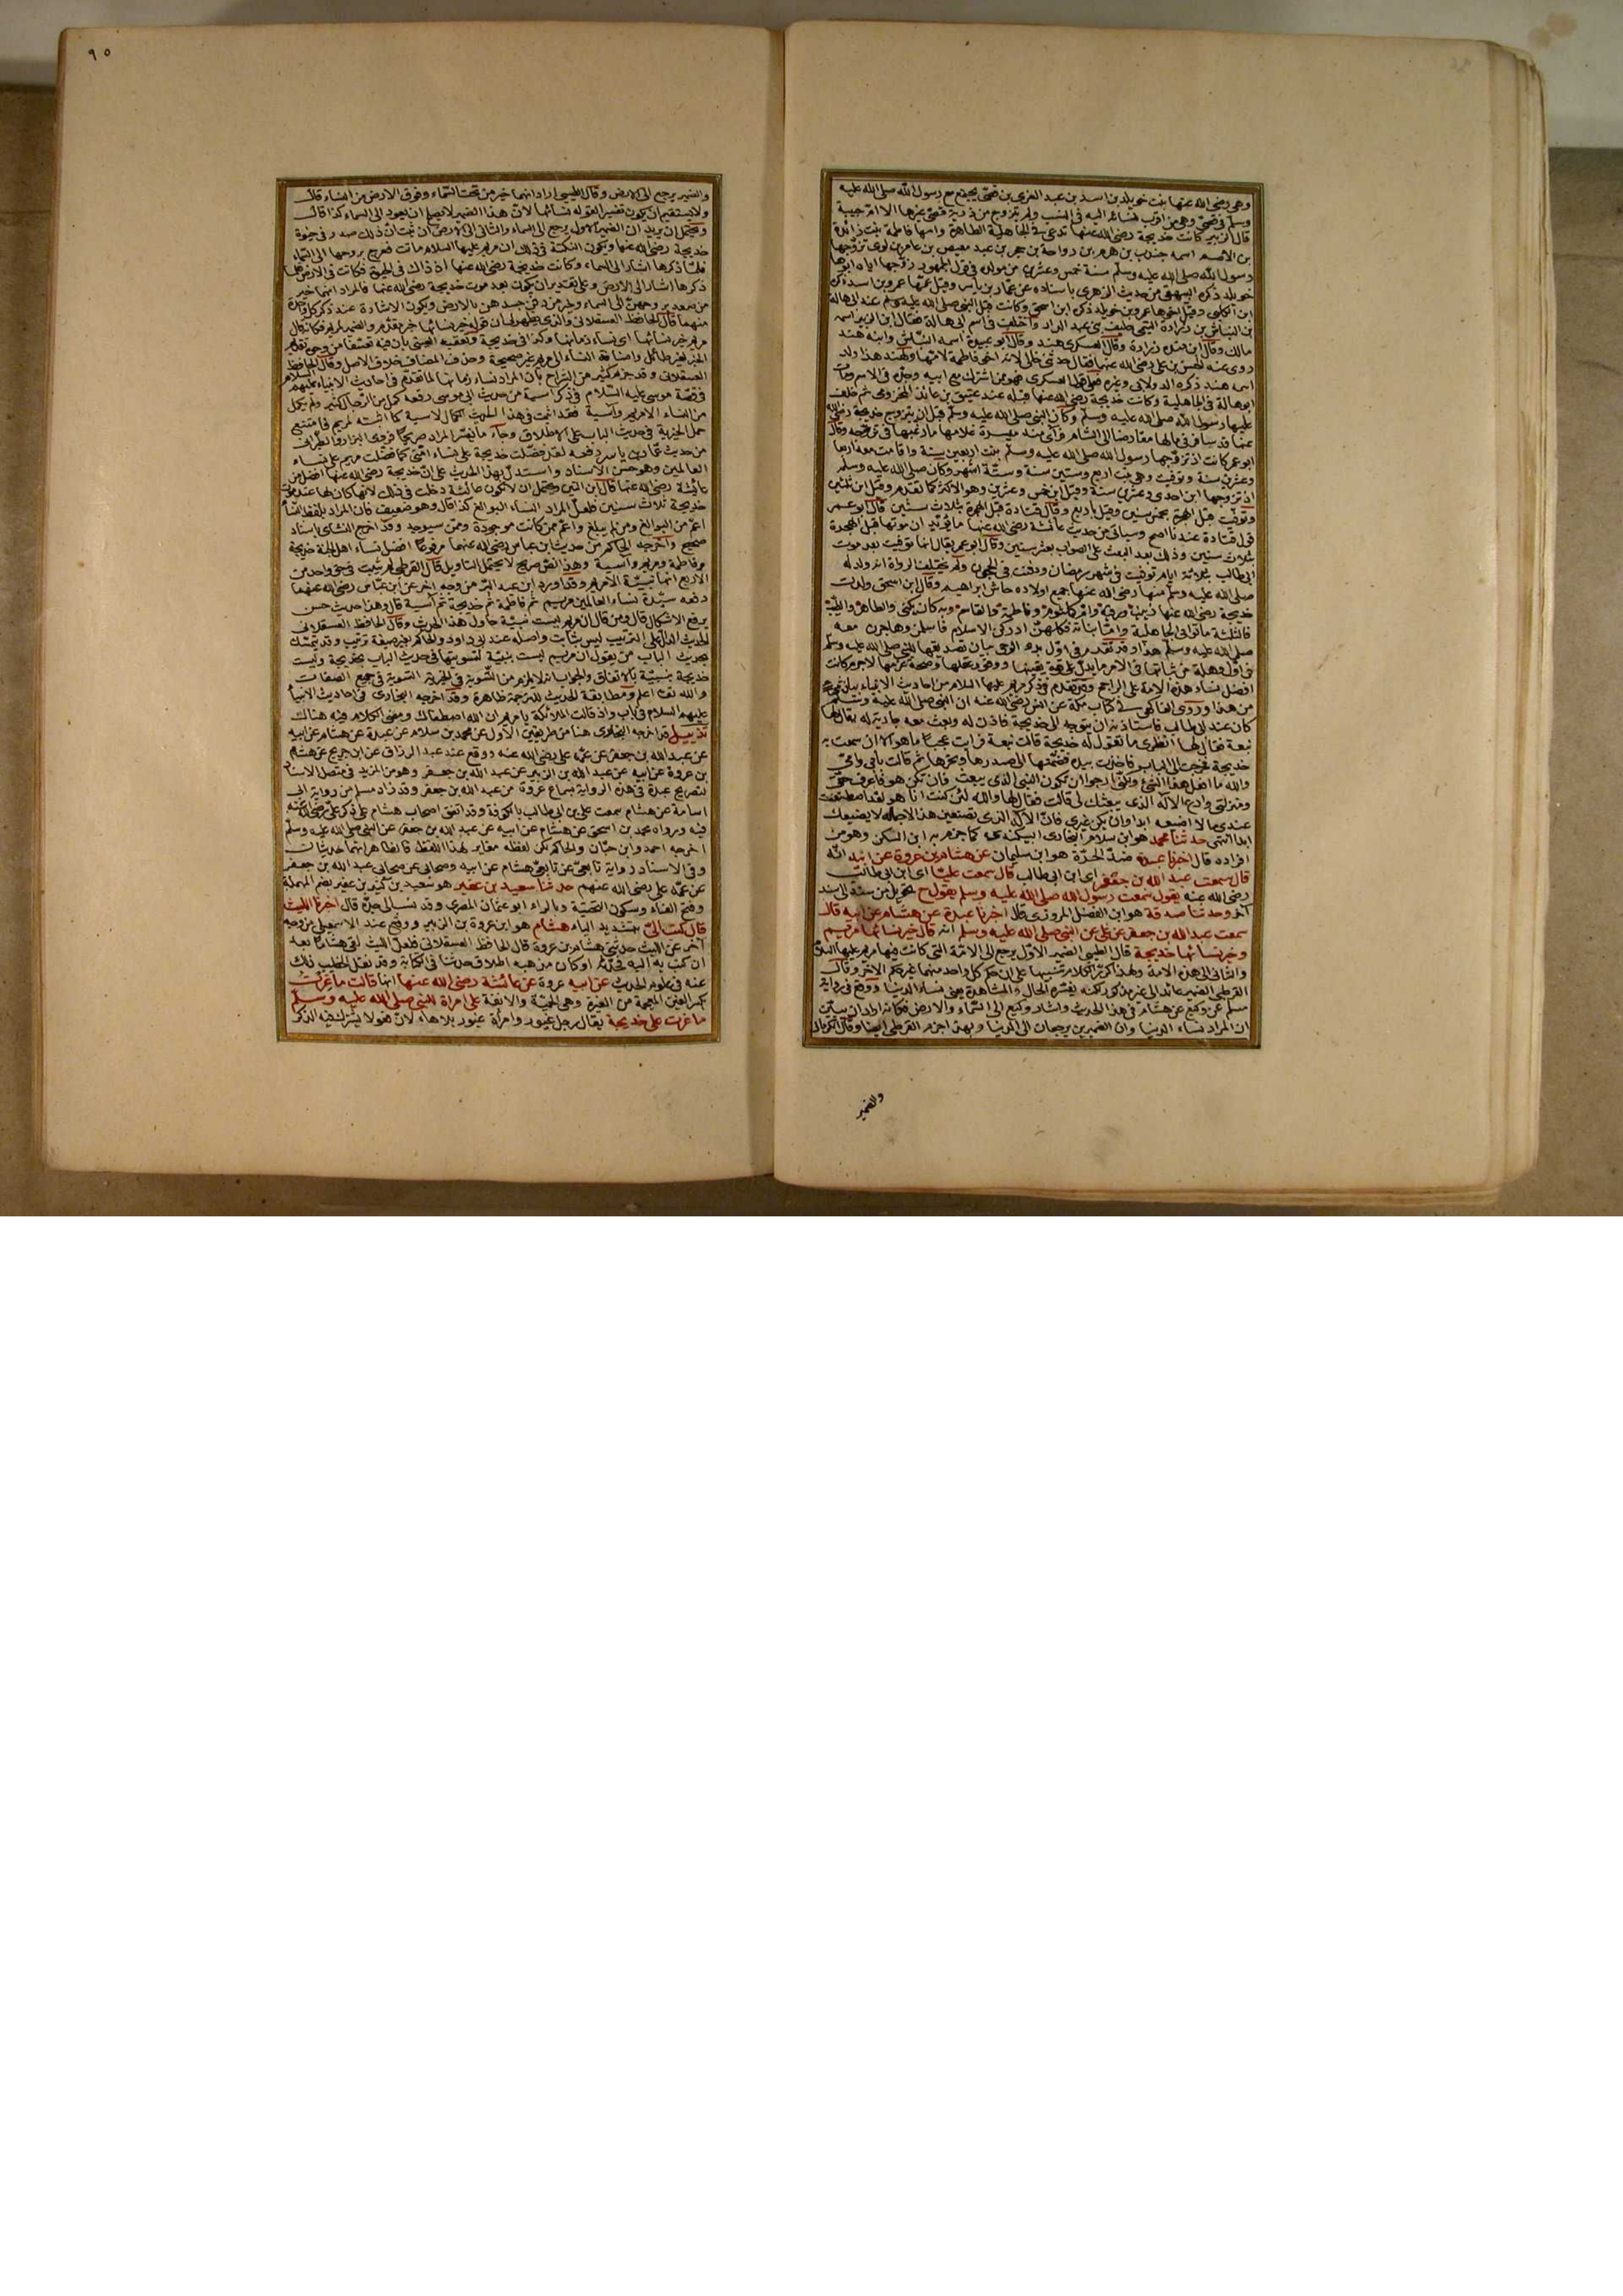 وهي رضي الله عنها بنت خويلد بن اسد بن عبد العزى بن قصي يجتمع مع رسول الله صلى الله عليه
وسلم في قصي وهي من اقرب نسائه اليه في النسب ولم يتزوج من ذرية قصي غيرها الا ام حبيبة
قال الزبير كانت خديجة رضي الله عنها تدعى في الجاهلية الطاهرة وامها فاطمة بنت زائدة
بن الاصم اسمه جندب بن هرم بن رواحة بن حجر بن عبد معيص بن عامر بن لوى تزوجها
رسول الله صلى الله عليه وسلم سنة خمس وعشرين من مولده في قول الجمهور زوجها اياه ابوها
خويلد ذكره البيهقي من حديث الزهري باسناده عن عمار بن ياسر وقيل عمها عمرو بن اسد ذكره
ابن الكلبي وقيل اخوها عمرو بن خويلد ذكره ابن اسحق وكانت قبل النبي صلى الله عليه وسلم عند ابي هالة
بن النباش بن زرارة التميمي حليف بني عبد الدار واختلف في اسم ابي هالة فقال ابن الزبير اسمه
مالك وقال ابن منده زرارة وقال العسكري هند وقال ابو عبيدة اسمه النباش وابنه هند
روى عنه الحسن بن علي رضي الله عنهما فقال حدثني خالي لانه اخى فاطمة لامها ولهند هذا ولد
اسمه هند ذكره الدولابي وغيره فعلى قول العسكري فهو ممن اشترك مع ابيه وجده في الاسم ومات
ابو هالة في الجاهلية وكانت خديجة رضي الله عنها قبله عند عتيق بن عائذ المخزومي ثم خلف
عليها رسول الله صلى الله عليه وسلم وكان النبي صلى الله عليه وسلم قبل ان يتزوج خديجة رضي الله
عنها قد سافر في مالها مقارضا الى الشام فرأى منه ميسرة غلامها ما رغبها في تزوجه وقال
ابو عمر كانت اذ تزوجها رسول الله صلى الله عليه وسلم بنت اربعين سنة واقامت معه اربعا
وعشرين سنة وتوفيت وهي بنت اربع وستين سنة وستة اشهر وكان صلى الله عليه وسلم
اذ تزوجها ابن احدى وعشرين سنة وقيل ابن خمس وعشرين وهو الاكثر كما تقدم وقيل ابن ثلثين
وتوفيت قبل الهجرة بخمس سنين وقيل باربع وقال قتادة قبل الهجرة بثلاث سنين قال ابو عمر
قول قتادة عندنا اصح وسيأتي من حديث عائشة رضي الله عنها ما يؤيد ان موتها قبل الهجرة
بثلاث سنين وذلك بعد المبعث على الصواب بعشر سنين وقال ابو عمر يقال انها توفيت بعد موت
ابي طالب بثلاثة ايام توفيت في شهر رمضان ودفنت في الحجون ولم يختلف الرواة انه ولد له
صلى الله عليه وسلم منها رضي الله عنها جميع اولاده حاش ابراهيم وقال ابن اسحق ولدت
خديجة رضي الله عنها زينب ورقية وام كلثوم وفاطمة والقاسم وبه كان يكنى والطاهر والطيب
فالثلثة ماتوا في الجاهلية واما بناته فكلهن ادركن الاسلام فاسلمن وهاجرن معه
صلى الله عليه وسلم هذا وقد تقدم في اول بدء الوحي بيان تصديقها للنبي صلى الله عليه وسلم
في اول وهلة من ثباتها في الامر ما يدل على قوة يقينها ووفور عقلها وصحة عزمها لا جرم كانت
افضل نساء هذه الامة على الراجح وقد تقدم في ذكر مريم عليها السلام من احاديث الانبياء بيان شيء
من هذا وروى الفاكهي في كتاب مكة عن انس رضي الله عنه ان النبي صلى الله عليه وسلم
كان عند ابي طالب فاستاذنه ان يتوجه الى خديجة فاذن له وبعث معه جارية له يقال لها
نبعة فقال لها انظري ما تقول له خديجة قالت نبعة فرأيت عجبا ما هو الا ان سمعت به
خديجة فخرجت الى الباب فاخذت بيده فضمتها الى صدرها ونحرها ثم قالت بابي وامي
والله ما افعل هذا لشئ ولكني ارجو ان تكون النبي الذي يبعث فان تكن هو فاعرف حقي
ومنزلتي وادع الاله الذي يبعثك لي قالت فقال لها والله لئن كنت انا هو لقد اصطنعت
عندي ما لا اضيعه ابدا وان يكن غيري فان الاله الذي تصنعين هذا لاجله لا يضيعك
ابدا انتهى حدثنا محمد هو ابن سلام البخاري البيكندي كما جزم به ابن السكن وهو من
افراده قال اخبرنا عبدة ضد الحرة هو ابن سليمان عن هشام بن عروة عن ابيه انه
قال سمعت عبد الله بن جعفر اى ابن ابي طالب قال سمعت عليا اى ابن ابي طالب
رضي الله عنه يقول سمعت رسول الله صلى الله عليه وسلم يقول ح تحويل من سند الى سند
آخر وحدثنا صدقة هو ابن الفضل المروزي قال اخبرنا عبدة عن هشام عن ابيه قال
سمعت عبد الله بن جعفر عن علي عن النبي صلى الله عليه وسلم انه قال خير نسائها مريم
وخير نسائها خديجة قال الطيبي الضمير الاول يرجع الى الامة التي كانت فيها مريم عليها السلام
والثاني الى هذه الامة ولهذا كرر الكلام تنبيها على ان حكم كل واحد منهما غير حكم الآخر وقال
القرطبي الضمير عائد الى غير مذكور لكنه يفسره الحال والمشاهدة يعني نساء الدنيا ووقع في رواية
مسلم عن وكيع عن هشام في هذا الحديث واشار وكيع الى السماء والارض فكانه اراد ان يبين
ان المراد نساء الدنيا وان الضميرين يرجعان الى الدنيا وبهذا جزم القرطبي ايضا وقال الكرماني
والضمير
٩٥
والضمير يرجع الى الارض وقال الطيبي اراد انهما خير من تحت السماء وفوق الارض من النساء قال
ولا يستقيم ان يكون تفسيرا لقوله نسائها لان هذا الضمير لا يصلح ان يعود الى السماء كذا قال
ويحتمل ان يريد ان الضمير الاول يرجع الى السماء والثاني الى الارض ان ثبت ان ذلك صدر في حيوة
خديجة رضي الله عنها ويكون النكتة في ذلك ان مريم عليها السلام ماتت فعرج بروحها الى السماء
فلما ذكرها اشار الى السماء وكانت خديجة رضي الله عنها اذ ذاك في الحيوة فكانت في الارض فلما
ذكرها اشار الى الارض وعلى تقدير ان يكون بعد موت خديجة رضي الله عنها فالمراد انهما خير
من صعد بروحهن الى السماء وخير من دفن جسدهن بالارض ويكون الاشارة عند ذكر كل واحدة
منهما قال الحافظ العسقلاني والذي يظهر لي ان قوله خير نسائها خبر مقدم والضمير لمريم فكانه قال
مريم خير نسائها اى نساء زمانها وكذا في خديجة وتعقبه العيني بان فيه تعسفا من وجوه تقديم
الخبر لغير طائل واضافة النساء الى مريم غير صحيحة وحذف المضاف خلاف الاصل وقال الحافظ
العسقلاني وقد جزم كثير من الشراح بان المراد نساء زمانها لما تقدم في احاديث الانبياء عليهم السلام
في قصة موسى عليه السلام في ذكر آسية من حديث ابي موسى رفعه كمل من الرجال كثير ولم يكمل
من النساء الا مريم وآسية فقد اثبت في هذا الحديث الكمال لآسية كما اثبته لمريم فامتنع
حمل الخيرية في حديث الباب على الاطلاق وجاء ما يفسر المراد صريحا فروى البزار والطبراني
من حديث عمار بن ياسر رفعه لقد فضلت خديجة على نساء امتي كما فضلت مريم على نساء
العالمين وهو حسن الاسناد واستدل بهذا الحديث على ان خديجة رضي الله عنها افضل من
عائشة رضي الله عنها قال ابن التين ويحتمل ان لا تكون عائشة دخلت في ذلك لانها كان لها عند موت
خديجة ثلاث سنين فلعل المراد النساء البوالغ كذا قال وهو ضعيف فان المراد بلفظ النساء
اعم من البوالغ ومن لم يبلغ واعم ممن كانت موجودة وممن سيوجد وقد اخرج النسائي باسناد
صحيح واخرجه الحاكم من حديث ابن عباس رضي الله عنهما مرفوعا افضل نساء اهل الجنة خديجة
وفاطمة ومريم وآسية وهذا نص صريح لا يحتمل التاويل قال القرطبي لم يثبت في حق واحدة من
الاربع انها نبية الا مريم وقد اورد ابن عبد البر من وجه آخر عن ابن عباس رضي الله عنهما
رفعه سيدة نساء العالمين مريم ثم فاطمة ثم خديجة ثم آسية قال وهذا حديث حسن
يرفع الاشكال قال ومن قال ان مريم ليست نبية حاول هذا الحديث وقال الحافظ العسقلاني
الحديث الدال على الترتيب ليس بثابت واصله عند ابي داود والحاكم بغير صيغة ترتيب وقد يتمسك
بحديث الباب من يقول ان مريم ليست بنبية لتسويتها في حديث الباب بخديجة وليست
خديجة بنبية بالاتفاق والجواب انه لا يلزم من التسوية في الخيرية التسوية في جميع الصفات
والله تعالى اعلم ومطابقة الحديث للترجمة ظاهرة وقد اخرجه البخاري في احاديث الانبياء
عليهم السلام في باب واذ قالت الملائكة يا مريم ان الله اصطفاك ومضى الكلام فيه هناك
تذييل قد اخرجه البخاري هنا من طريقين الاول عن محمد بن سلام عن عبدة عن هشام عن ابيه
عن عبد الله بن جعفر عن عمه علي رضي الله عنه ووقع عند عبد الرزاق عن ابن جريج عن هشام
بن عروة عن ابيه عن عبد الله بن الزبير عن عبد الله بن جعفر وهو من المزيد في متصل الاسناد
لتصريح عبدة في هذه الرواية بسماع عروة من عبد الله بن جعفر وقد زاد مسلم من رواية ابي
اسامة عن هشام سمعت علي بن ابي طالب بالكوفة وقد اتفق اصحاب هشام على ذكر علي رضي الله عنه
فيه ورواه محمد بن اسحق عن هشام عن ابيه عن عبد الله بن جعفر عن النبي صلى الله عليه وسلم
اخرجه احمد وابن حبان والحاكم لكن لفظه مغاير لهذا اللفظ فالظاهر انهما حديثان
وفي الاسناد رواية تابعي عن تابعي هشام عن ابيه وصحابي عن صحابي عبد الله بن جعفر
عن عمه علي رضي الله عنهم حدثنا سعيد بن عفير هو سعيد بن كثير بن عفير بضم المهملة
وفتح الفاء وسكون التحتية وبالراء ابو عثمان المصري وقد نسب الى جده قال اخبرنا الليث
قال كتب الي بتشديد الياء هشام هو ابن عروة بن الزبير ووقع عند الاسمعيلي من وجه
آخر عن الليث حدثني هشام بن عروة قال الحافظ العسقلاني فلعل الليث لقي هشاما بعد
ان كتب به اليه فحدثه او كان مذهبه اطلاق حدثنا في الكتابة وقد نقل الخطيب ذلك
عنه في علوم الحديث عن ابيه عروة عن عائشة رضي الله عنها انها قالت ما غرت
بكسر الغين المعجمة من الغيرة وهي الحمية والانفة على امراة للنبي صلى الله عليه وسلم
ما غرت على خديجة يقال رجل غيور وامرأة غيور بلا هاء لان فعولا يشترك فيه الذكر